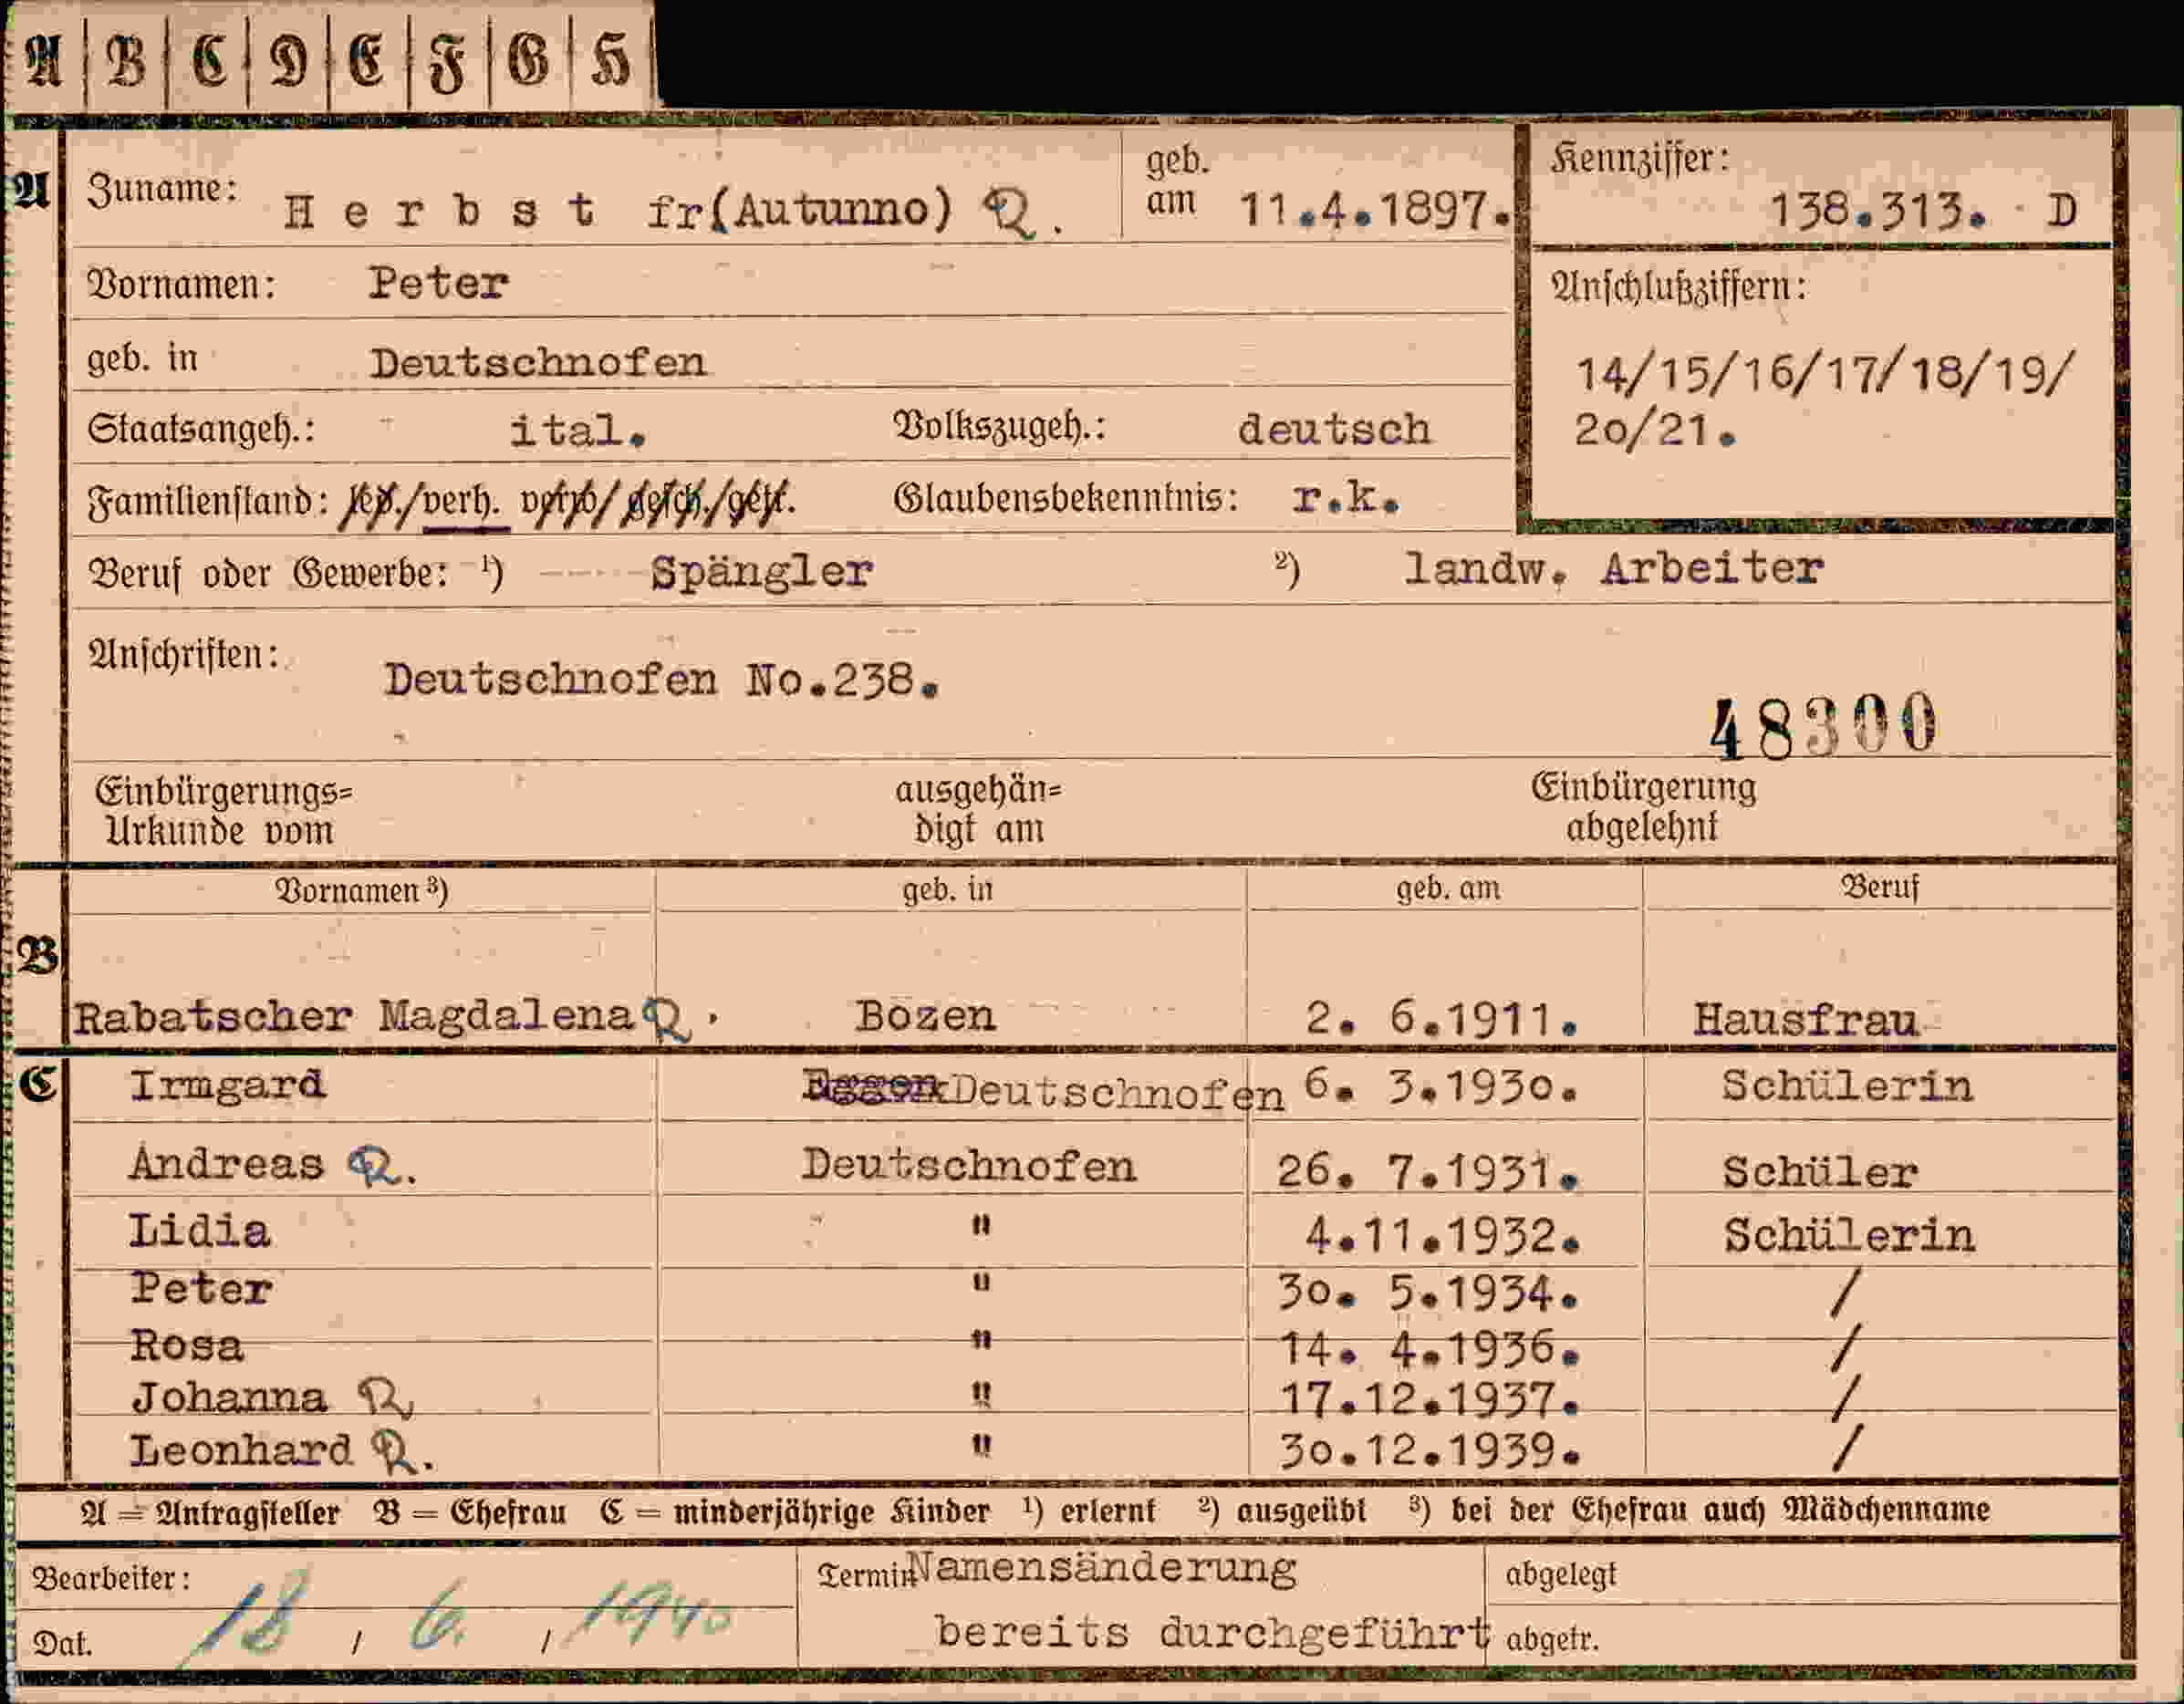 A B C D E F G H
A Zuname: Herbst fr(Autunno) R. geb. am 11.4.1897. Kennziffer: 138.313. D
Vornamen: Peter
geb. in Deutschnofen Anschlußziffern:
14/15/16/17/18/19/
20/21.
Staatsangeh.: ital. Volkszugeh.: deutsch
Familienstand: led./verh. verw/gesch./getr. Glaubensbekenntnis: r.k.
Beruf oder Gewerbe: 1) Spängler 2) landw. Arbeiter
Anschriften: Deutschnofen No.238.
48300
Einbürgerungs= ausgehän= Einbürgerung
Urkunde vom digt am abgelehnt
Vornamen 3) geb. in geb. am Beruf
B
Rabatscher Magdalena R. Bozen 2. 6.1911. Hausfrau
C Irmgard Eggen Deutschnofen 6. 3.1930. Schülerin
Andreas R. Deutschnofen 26. 7.1931. Schüler
Lidia " 4.11.1932. Schülerin
Peter " 30. 5.1934. /
Rosa " 14. 4.1936. /
Johanna R " 17.12.1937. /
Leonhard R. " 30.12.1939. /
A = Antragsteller B = Ehefrau C = minderjährige Kinder 1) erlernt 2) ausgeübt 3) bei der Ehefrau auch Mädchenname
Bearbeiter: Termin Namensänderung abgelegt
Dat. 18 / 6. / 1940 bereits durchgeführt abgetr.